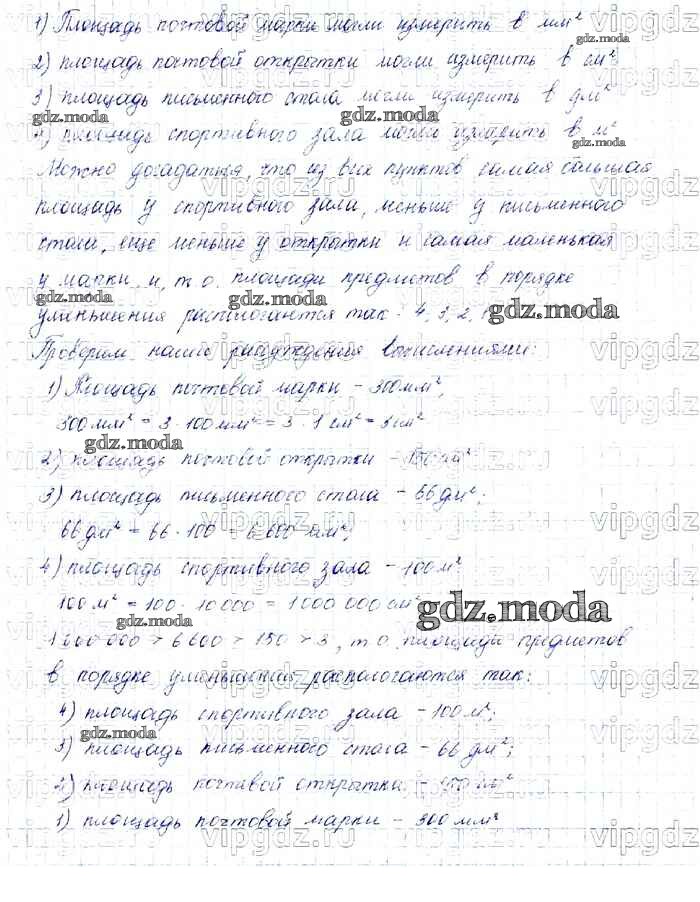 1) Площадь почтовой марки могли измерить в мм²
2) площадь почтовой открытки могли измерить в см²
3) площадь письменного стола могли измерить в дм²
4) площадь спортивного зала могли измерить в м²
Можно догадаться, что из всех пунктов самая большая
площадь у спортивного зала, меньше у письменного
стола, еще меньше у открытки и самая маленькая
у марки и, т о. площади предметов в порядке
уменьшения располагаются так: 4, 3, 2, 1
Проверим наши рассуждения вычислениями:
1) Площадь почтовой марки – 300 мм²,
300 мм² = 3 · 100 мм² = 3 · 1 см² = 3 см²
2) площадь почтовой открытки – 150 см²
3) площадь письменного стола – 66 дм²;
66 дм² = 66 · 100 = 6 600
4) площадь спортивного зала – 100 м²
100 м² = 100 · 10 000 = 1 000 000 см²
1 000 000 > 6 600 > 150 > 3, т о. площади предметов
в порядке уменьшения располагаются так:
4) площадь спортивного зала – 100 м²;
3) площадь письменного стола – 66 дм²;
2) площадь почтовой открытки – 150 см²
1) площадь почтовой марки – 300 мм²
gdz.moda
vipgdz.ru